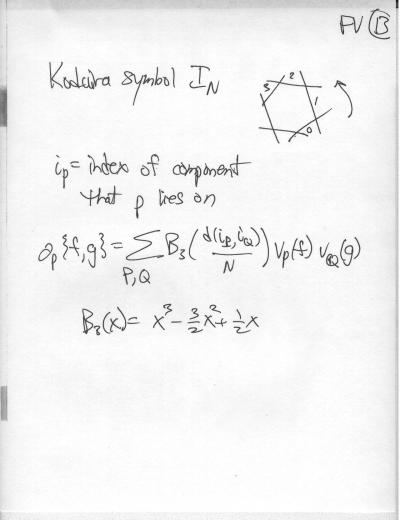 FV (B)
Kodaira symbol I_N
3 2 1 0
i_p = index of component
that p lies on
∂_p{f,g} = ∑_{P,Q} B_3(d(i_P, i_Q)/N) v_P(f) v_Q(g)
B_3(x) = x^3 - 3/2 x^2 + 1/2 x